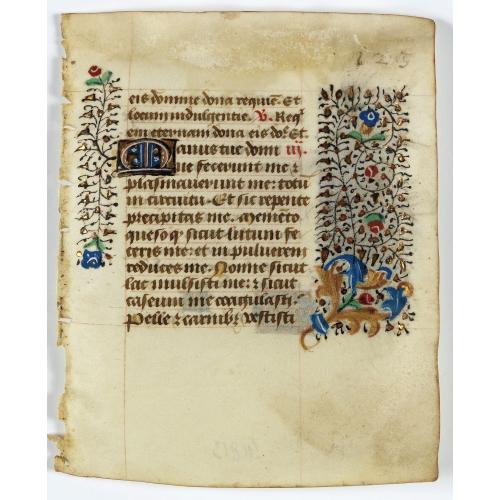 125
eis domine dona requiē Et
locum indulgentie. V. Req̄
em eternam dona eis do. Et
Manus tue domi iij.
ne fecerunt me ⁊
plasmaverunt me: totū
in circuitu. Et sic repente
precipitas me. Memēto
queso q sicut lutum fe
ceris me: et in pulverem
reduces me. Nonne sicut
lac mulsisti me: ⁊ sicut
caseum me coagulasti.
Pelle ⁊ carnibꝫ vestisti